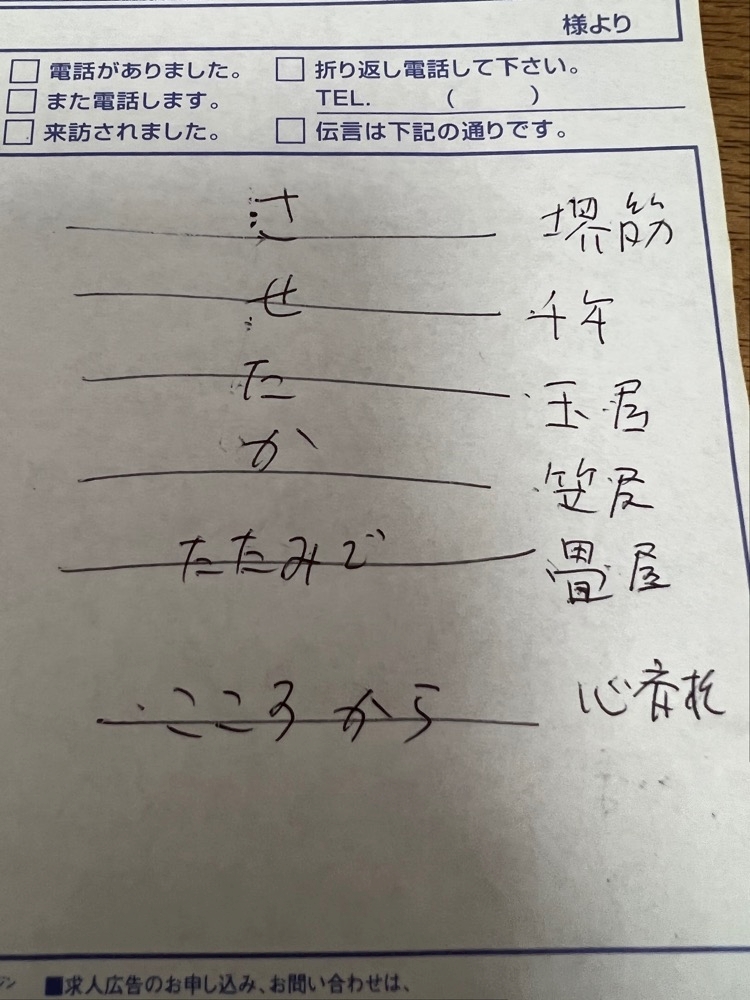 様より
□ 電話がありました。 □ 折り返し電話して下さい。
□ また電話します。 TEL. ( )
□ 来訪されました。 □ 伝言は下記の通りです。
さ 堺筋
せ 千年
た 玉屋
か 笠屋
たたみで 畳屋
こころから 心斎橋
■求人広告のお申し込み、お問い合わせは、